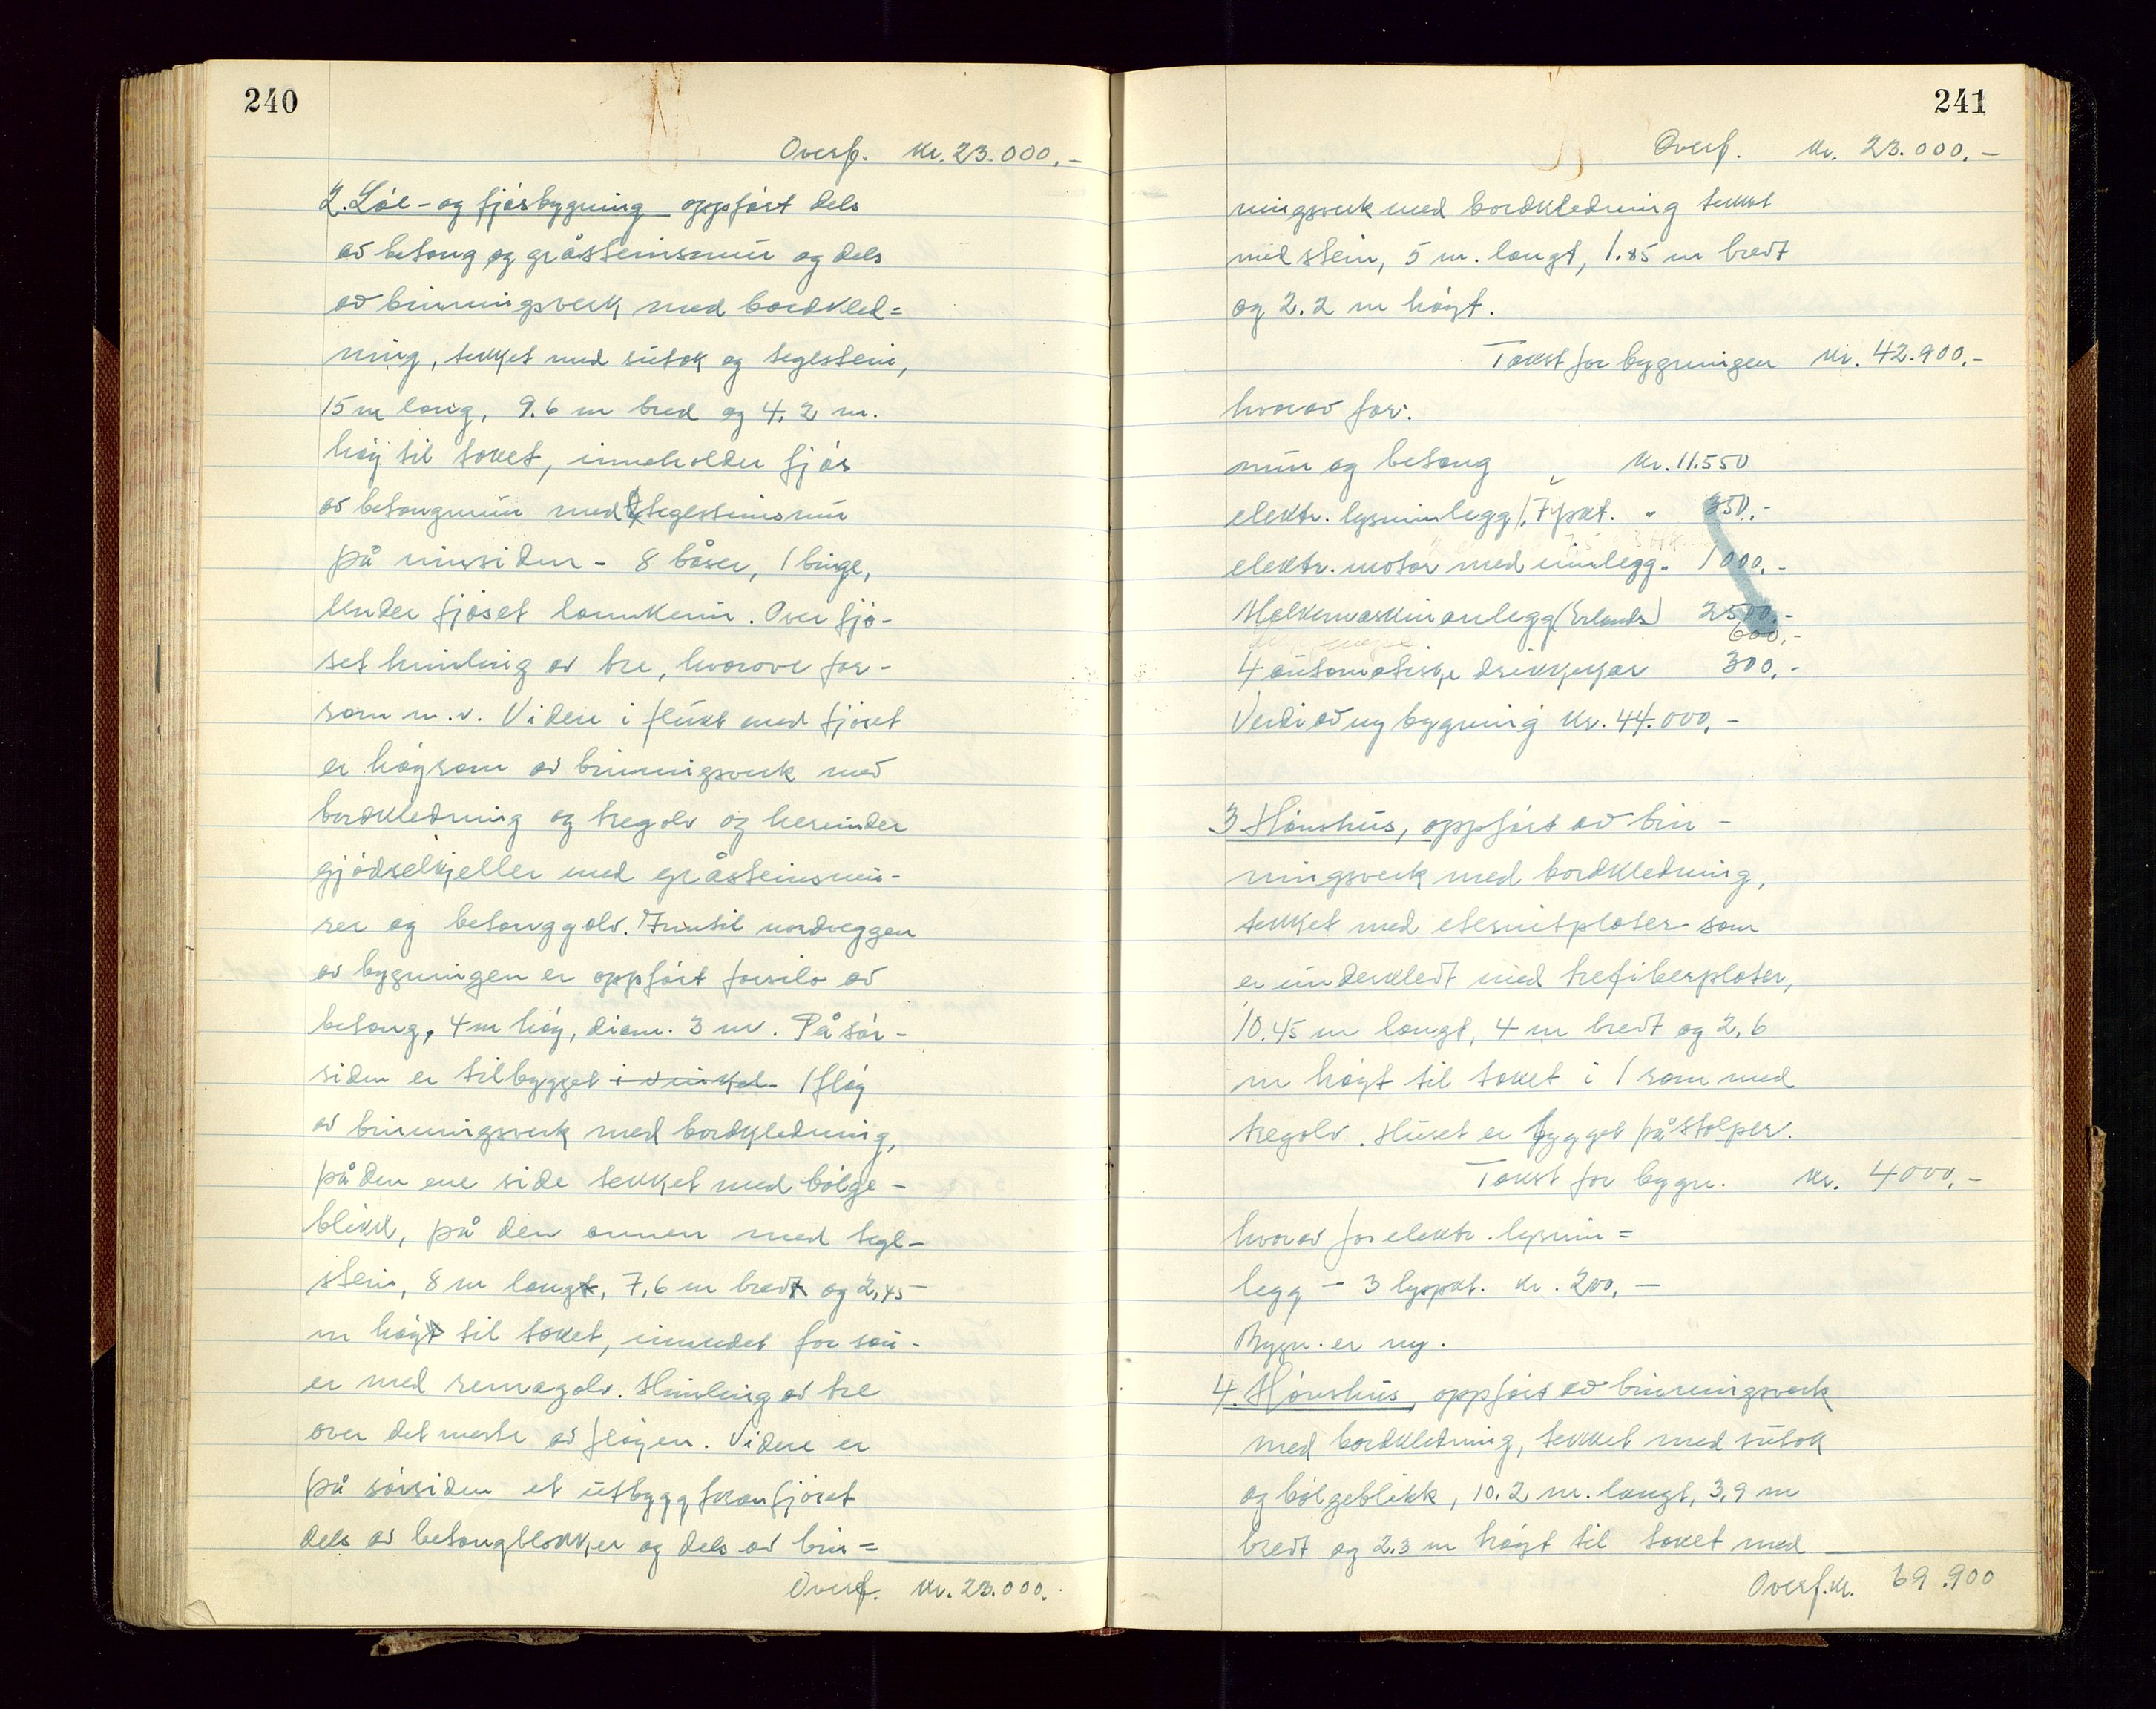 240
Overf. Kr. 23.000,-
2. Löe- og fjösbygning oppfört dels
av betong og gråsteinsmur og dels
av binningsverk med bordkled=
ning, tekket med sutak og teglstein,
15 m lang, 9.6 m bred og 4,2 m.
höy til taket, inneholder fjös
av betongmur med teglsteinsmur
på innsiden - 8 båser, 1 binge,
Under fjöset landkum. Over fjö-
set himling av tre, hvorove for-
rom m.v. Videre i flukt med fjöset
er höyrom av binningsverk med
bordkledning og tregolv og herunder
gjödselkjeller med gråsteinsmu-
rer og betonggolv. Inntil nordveggen
av bygningen er oppfört forsilo av
betong, 4 m höy, diam. 3 m. På sör-
siden er tilbygget i vinkel 1 flöy
av binningsverk med bordkledning,
på den ene side tekket med bölge-
blikk, på den annen med tegl-
stein, 8 m langt, 7,6 m bredt og 2,45
m höyt til taket, innredet for sau-
er med remagolv. Himling av tre
over det meste av flöyen. Videre er
på sörsiden et utbygg fra fjöset
dels av betongblokker og dels av bin=
Overf. Kr. 23.000.
241
Overf. Kr. 23.000,-
ningsverk med bordkledning tekket
med stein, 5 m. langt, 1.85 m bredt
og 2.2 m höyt.
Takst for bygningen Kr. 42.900,-
hvorav for:
mur og betong Kr. 11.550
elektr. lysinnlegg, 17 pkt. " 850,-
elektr. motor med innlegg " 1000,-
Melkemaskinanlegg (Erlands) 2500,-
600,-
4 automatiske drikkekar 300,-
Verdi av ny bygning Kr. 44.000,-
3 Hönshus, oppfört av bin-
ningsverk med bordkledning,
tekket med eternitplater som
er underkledt med trefiberplater,
10.45 m langt, 4 m bredt og 2,6
m höyt til taket i 1 rom med
tregolv. Huset er bygget på stolper.
Takst for bygn. Kr. 4000,-
hvorav for elektr. lysinn=
legg - 3 lyspkt. Kr. 200,-
Bygn. er ny.
4. Hönshus, oppfört av binningsverk
med bordkledning, tekket med sutak
og bölgeblikk, 10.2 m. langt, 3,9 m
bredt og 2.3 m höyt til taket med
Overf. kr. 69.900